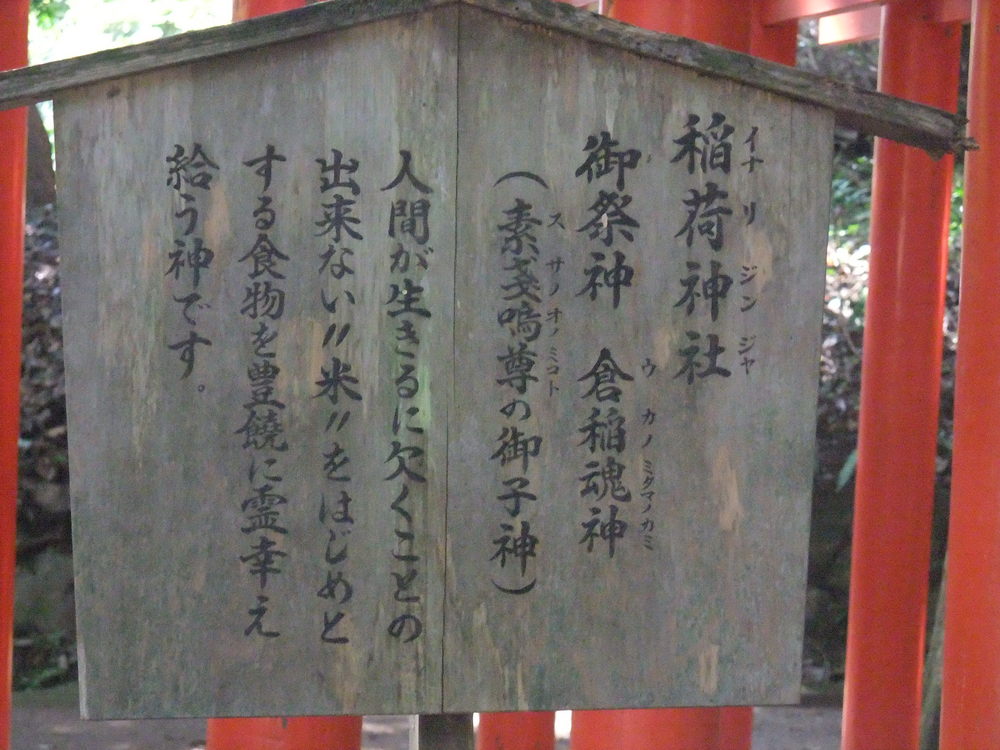 稲荷神社
イナリジンジャ
御祭神 倉稲魂神
ウカノミタマノカミ
(素戔嗚尊の御子神)
スサノオノミコト
人間が生きるに欠くことの
出来ない〃米〃をはじめと
する食物を豊饒に霊幸え
給う神です。